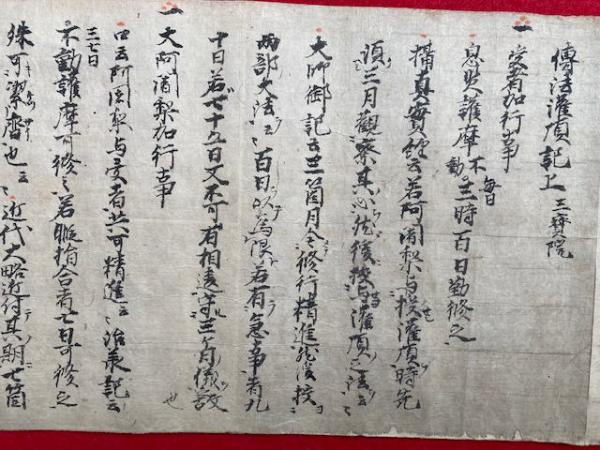 傳法灌頂記上 三寳院
一 受者加行事
息災護摩 不動 毎日三時百日勤修之
攝真實經云若阿闍梨与授灌頂時先
須三月觀察其心然後授与灌頂之法云々
大師御記云三箇月令修行精進然後授
两部大法云々百日以為限若有急事者九
十日若七十五日又不可有相違守三ケ月儀故也
一 大阿闍梨加行事
口云阿闍梨与受者共可精進云々治承記云
三七日不動護摩可修之若 指合者七日可修之
殊可潔齋也云々近代大略近付其期七箇